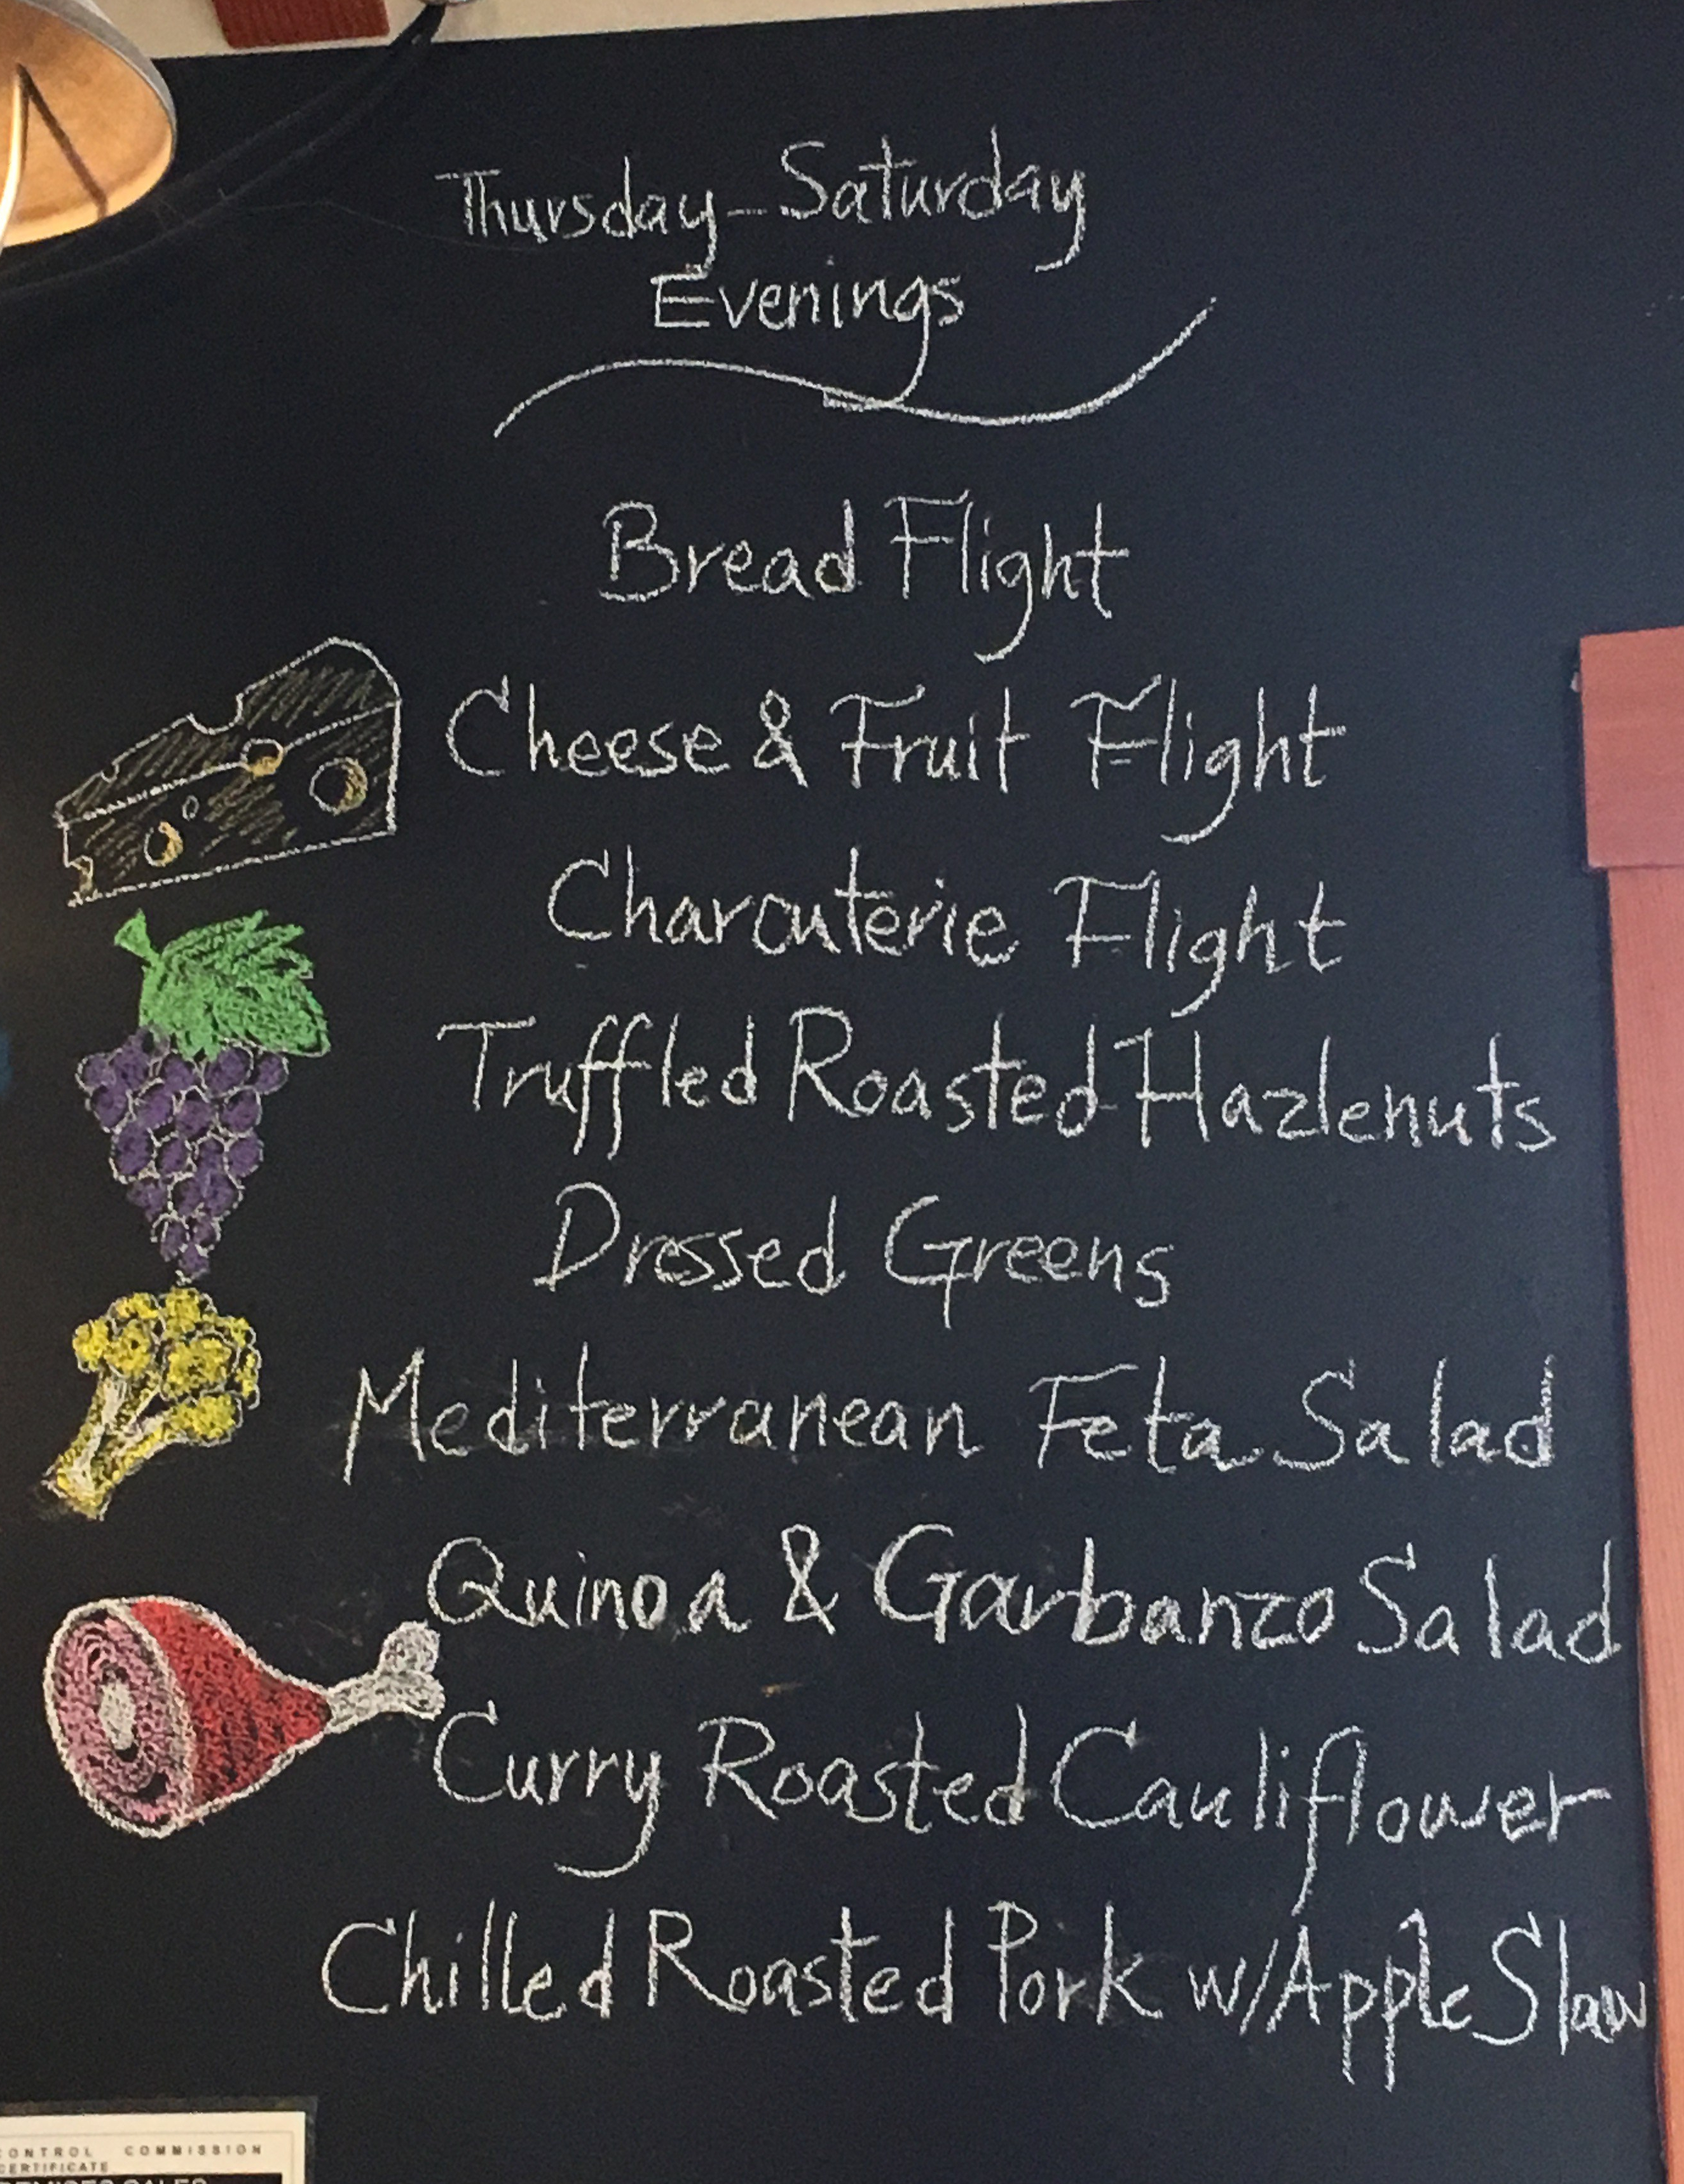 Thursday-Saturday
Evenings
Bread Flight
Cheese & Fruit Flight
Charcuterie Flight
Truffled Roasted Hazlenuts
Dressed Greens
Mediterranean Feta Salad
Quinoa & Garbanzo Salad
Curry Roasted Cauliflower
Chilled Roasted Pork w/Apple Slaw
CONTROL COMMISSION
CERTIFICATE